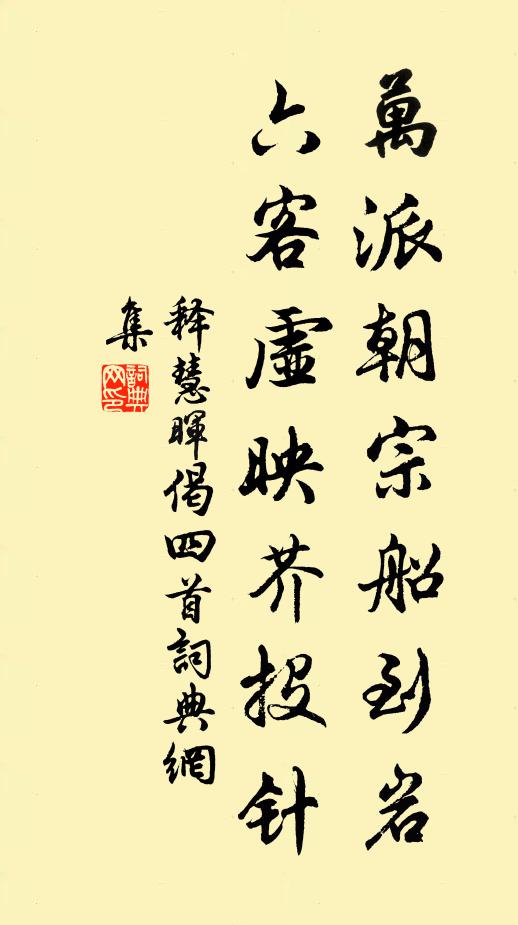 萬派朝宗船到岩
六客虛映芥投针
释慧暉偈四首詞典網
集
詞典网印